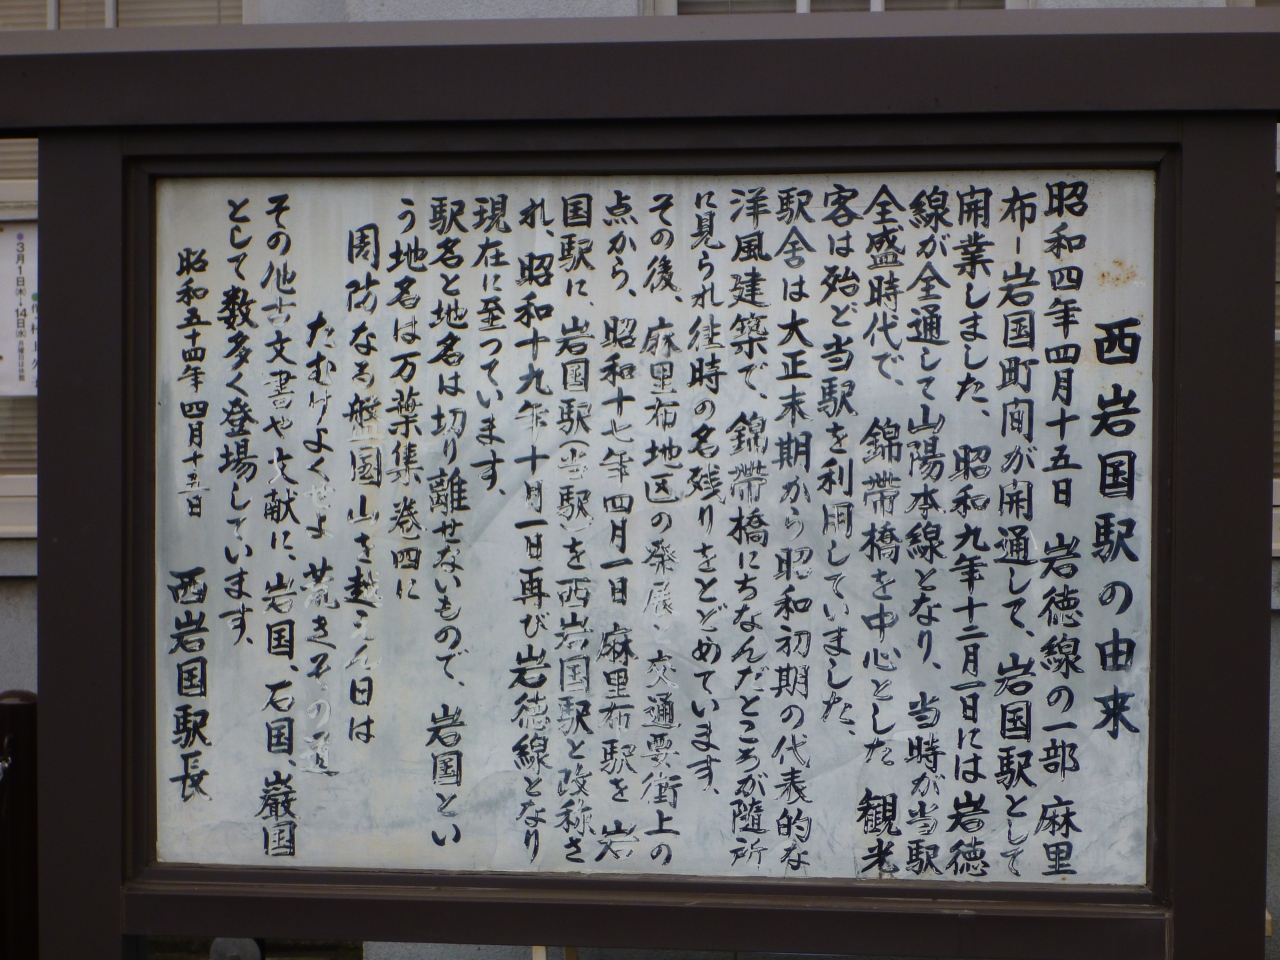 西岩国駅の由来
昭和四年四月十五日 岩徳線の一部 麻里
布ー岩国町間が開通して、岩国駅として
開業しました、昭和九年十二月一日には岩徳
線が全通して山陽本線となり、当時が当駅
全盛時代で、錦帯橋を中心とした 観光
客は殆ど当駅を利用していました、
駅舎は大正末期から昭和初期の代表的な
洋風建築で、錦帯橋にちなんだところが随所
に見られ往時の名残りをとどめています、
その後、麻里布地区の発展と交通要衝上の
点から、昭和十七年四月一日 麻里布駅を 岩
国駅に、岩国駅(当駅)を西岩国駅と改称さ
れ、昭和十九年十月一日再び岩徳線となり
現在に至っています、
駅名と地名は切り離せないもので、岩国とい
う地名は万葉集 巻四に
周防なる盤国山を越えん日は
たむけよくせよ 荒きその道
その他古文書や文献に、岩国、石国、巌国
として数多く登場しています、
昭和五十四年四月十五日 西岩国駅長
3月1日(木)～14日(水)